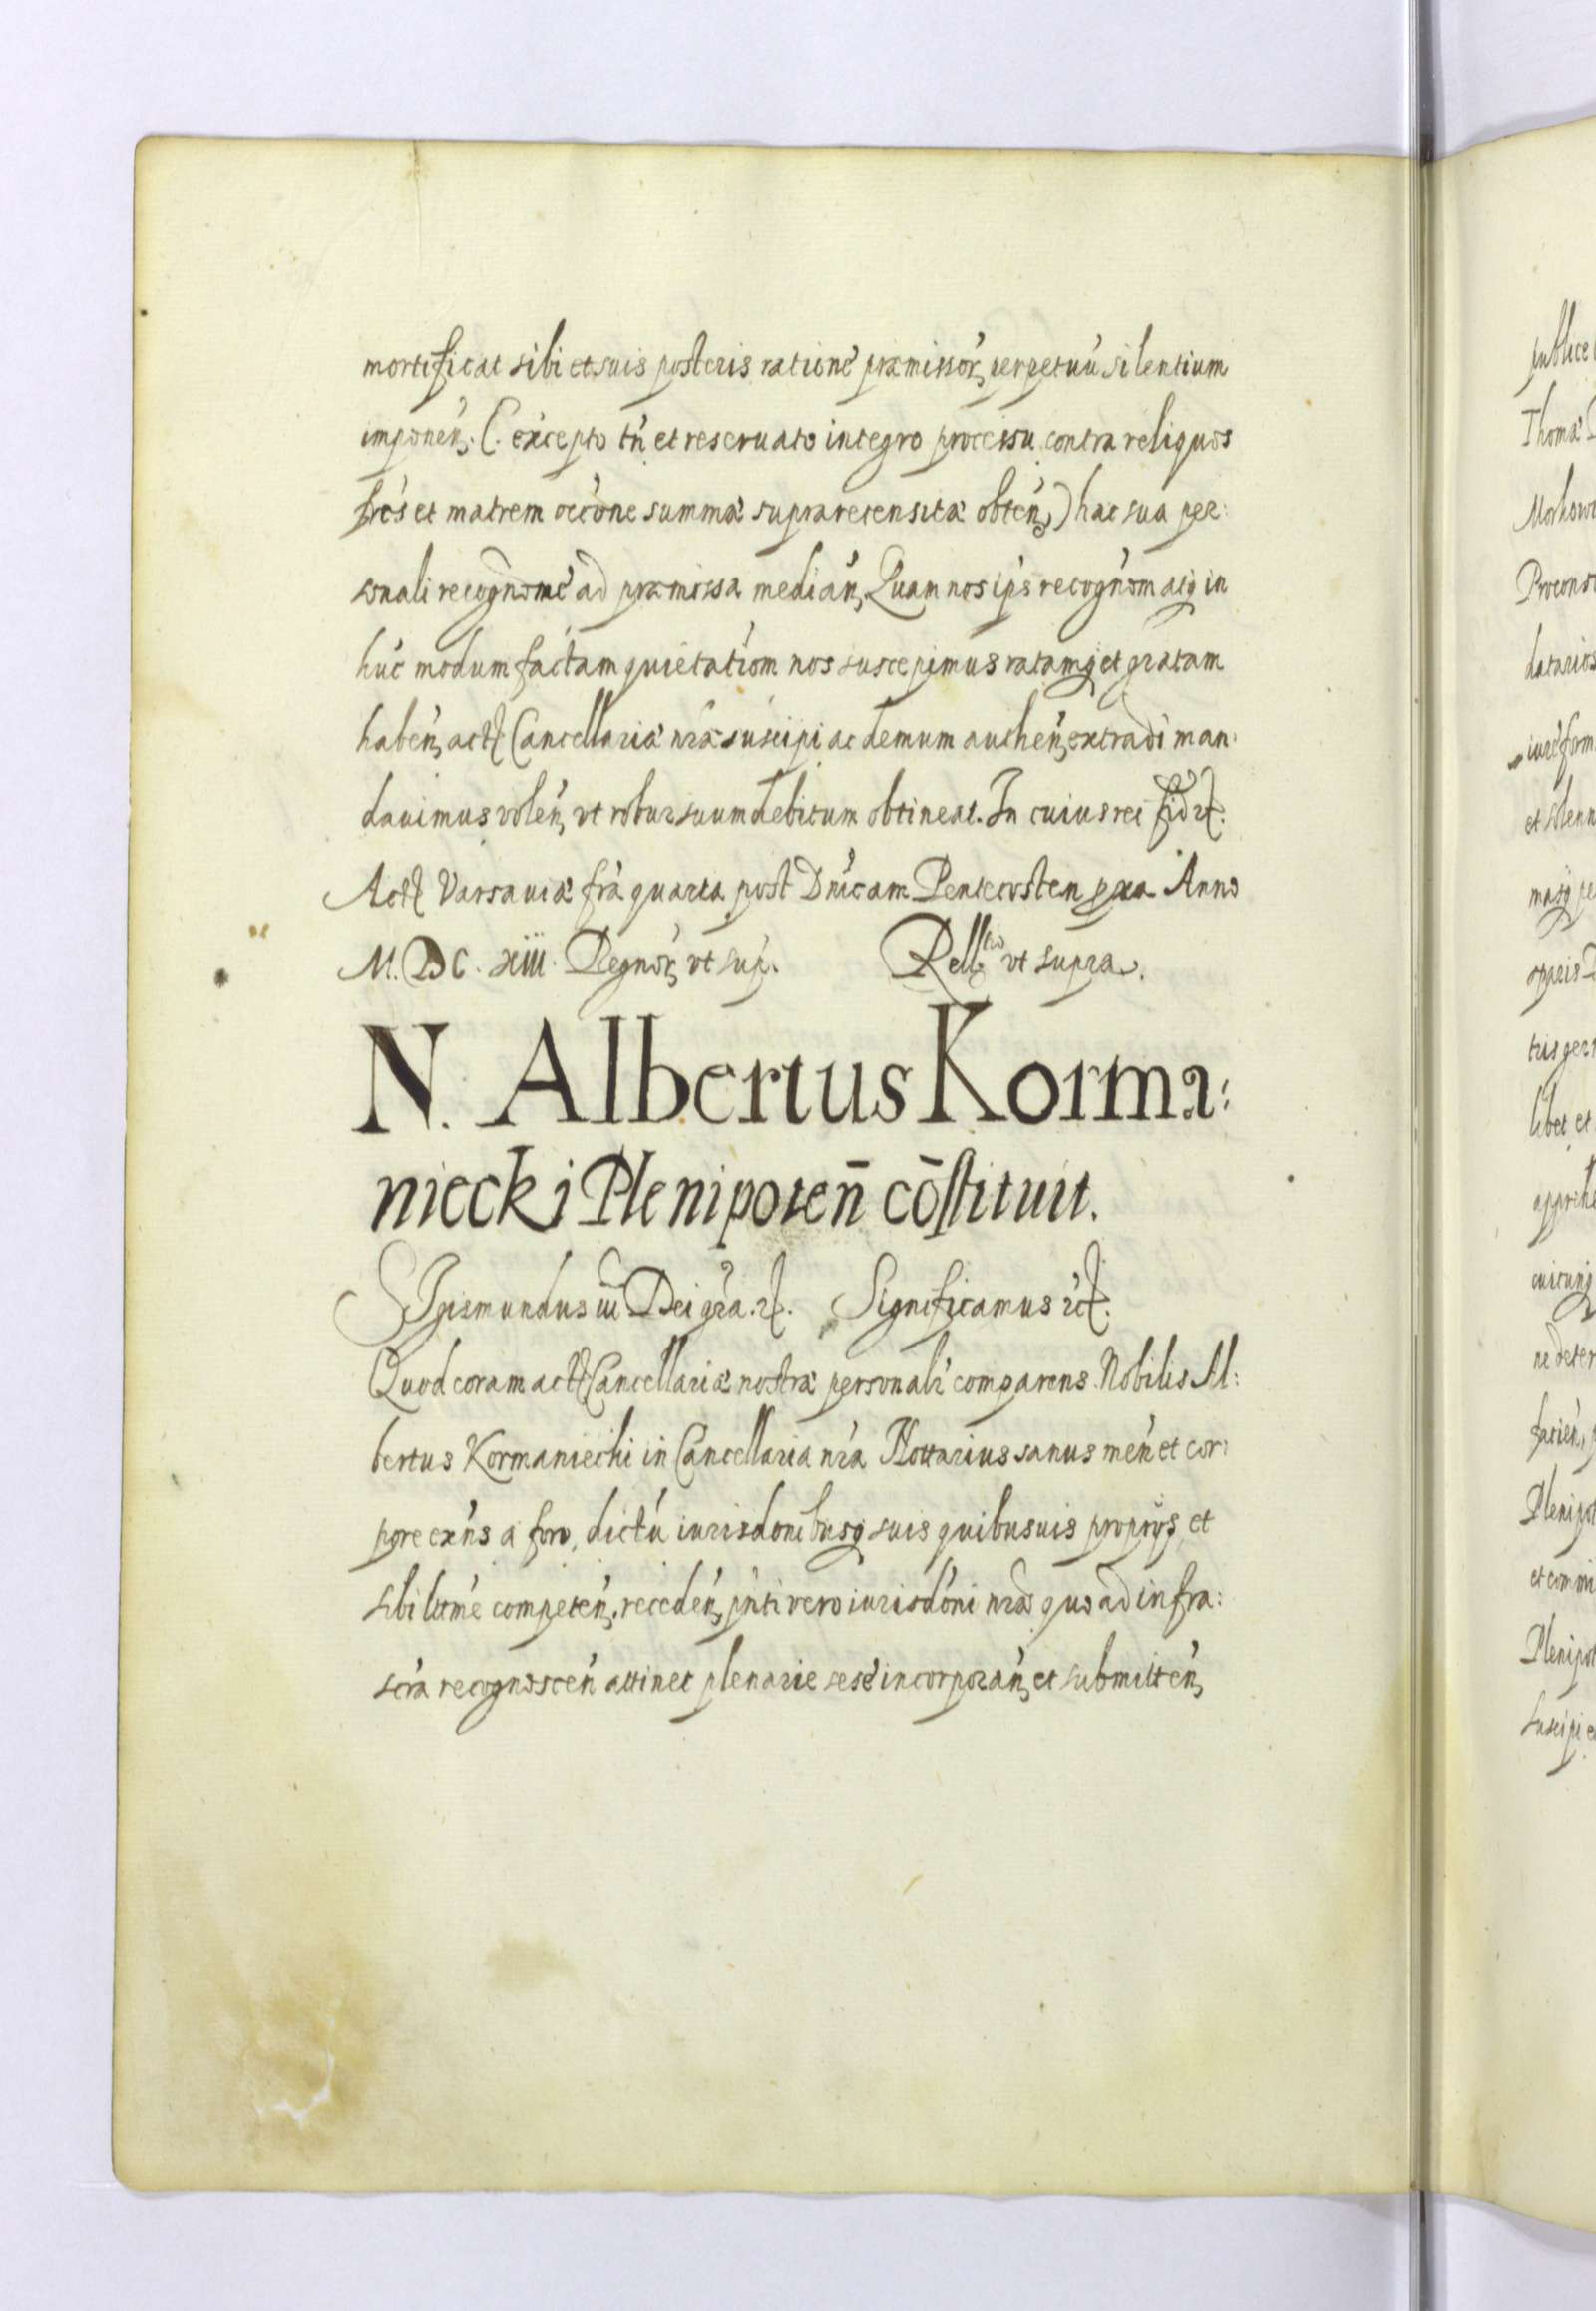 mortificat sibi et suis posteris rationé præmissor̃, perpetuú silentium
imponen̄, (excepto tń et reseruato integro processu contra reliquos
fres et matrem occone summæ suprarecensitæ obten̄,) hac sua per:
sonali recognomé ad præmissa median̄, Quam nos ips recognom atq in
huc modum factam quietatiom nos suscepimus ratamq et gratam
haben̄, actt Cancellariæ nræ suscipi ac demum authen̄, extradi man:
dauimus volen̄, vt robur suum debitum obtineat. In cuius rei fid rt.
Actt Varsauiæ fra quarta post Dnicam Pentecosten pxa Anno
M. DC. xiii. Regnor̃, vt sup. Rell tio vt supra.
N. Albertus Korma:
niecki Plenipoten̄ cōstituit.
SIgismundus iii Dei gra. rt. Significamus rt.
Quod coram actt Cancellariæ nostræ personalr comparens Nobilis Al:
bertus Kormaniechi in Cancellaria nra Nottarius sanus men̄ et cor:
pore exńs a foro, dictú iurisdonibusq suis quibusuis proprijs, et
sibi ltme competen̄, receden̄, pńti vero iurisdoni nræ quo ad infra:
scra recognoscen̄ attinet plenarie sesé incorporan̄, et submitten̄,
publice
Thomæ
Proconso
datarios
iuré form
et solenn
libet et
Plenipot
Plenipot